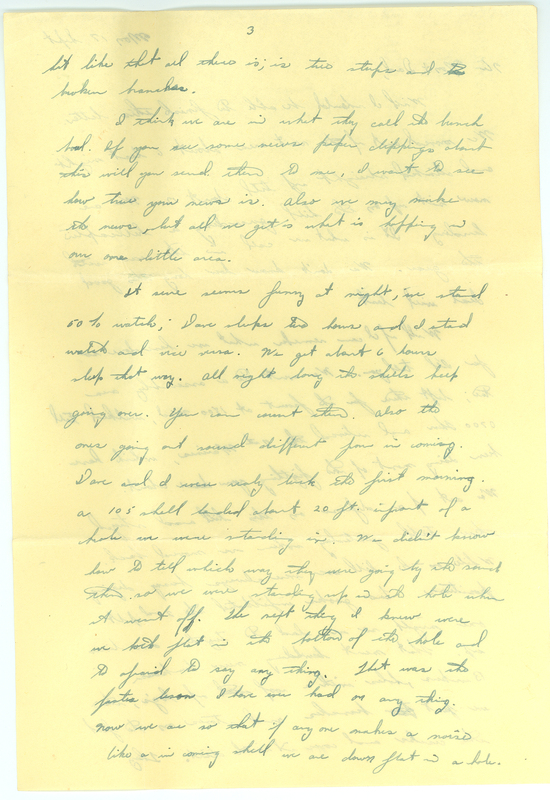 3
hit like that all there is; is tree stumps and
broken branches.
I think we are in what they call the bunch
bal. If you see some news paper clippings about
this will you send them to me, I want to see
how true your news is. Also we may make
the news, but all we get's is what is happing in
our one little area.
It sure seems funny at night, we stand
50% watch; Dave sleeps two hours and I stand
watch and vice versa. We get about 6 hours
sleep that way. All night long the shells keep
going over. You can count them. Also the
ones going out sound different from in coming.
Dave and I were realy luck the first morning.
a 105 shell landed about 20 ft. infront of a
hole we were standing in. We didn't know
how to tell which way they were going by the sound
then so we were standing up in the hole when
it went off. The next thing I knew were
we both flat in the bottom of the hole and
to afraid to say any thing. That was the
fastes lesson I have ever had on any thing.
now we are so that if any one makes a noise
like a in coming shell we are down flat in a hole.